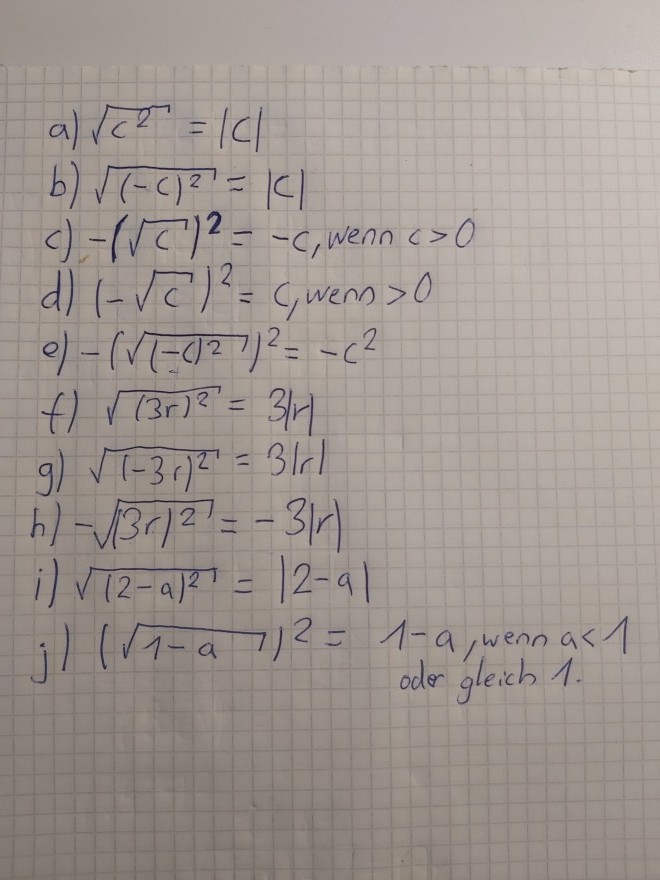 a) √(c²) = |c|
b) √((-c)²) = |c|
c) -(√c)² = -c, wenn c > 0
d) (-√c)² = c, wenn > 0
e) -(√((-c)²))² = -c²
f) √((3r)²) = 3|r|
g) √((-3r)²) = 3|r|
h) -√((3r)²) = -3|r|
i) √((2-a)²) = |2-a|
j) (√(1-a))² = 1-a, wenn a < 1
oder gleich 1.